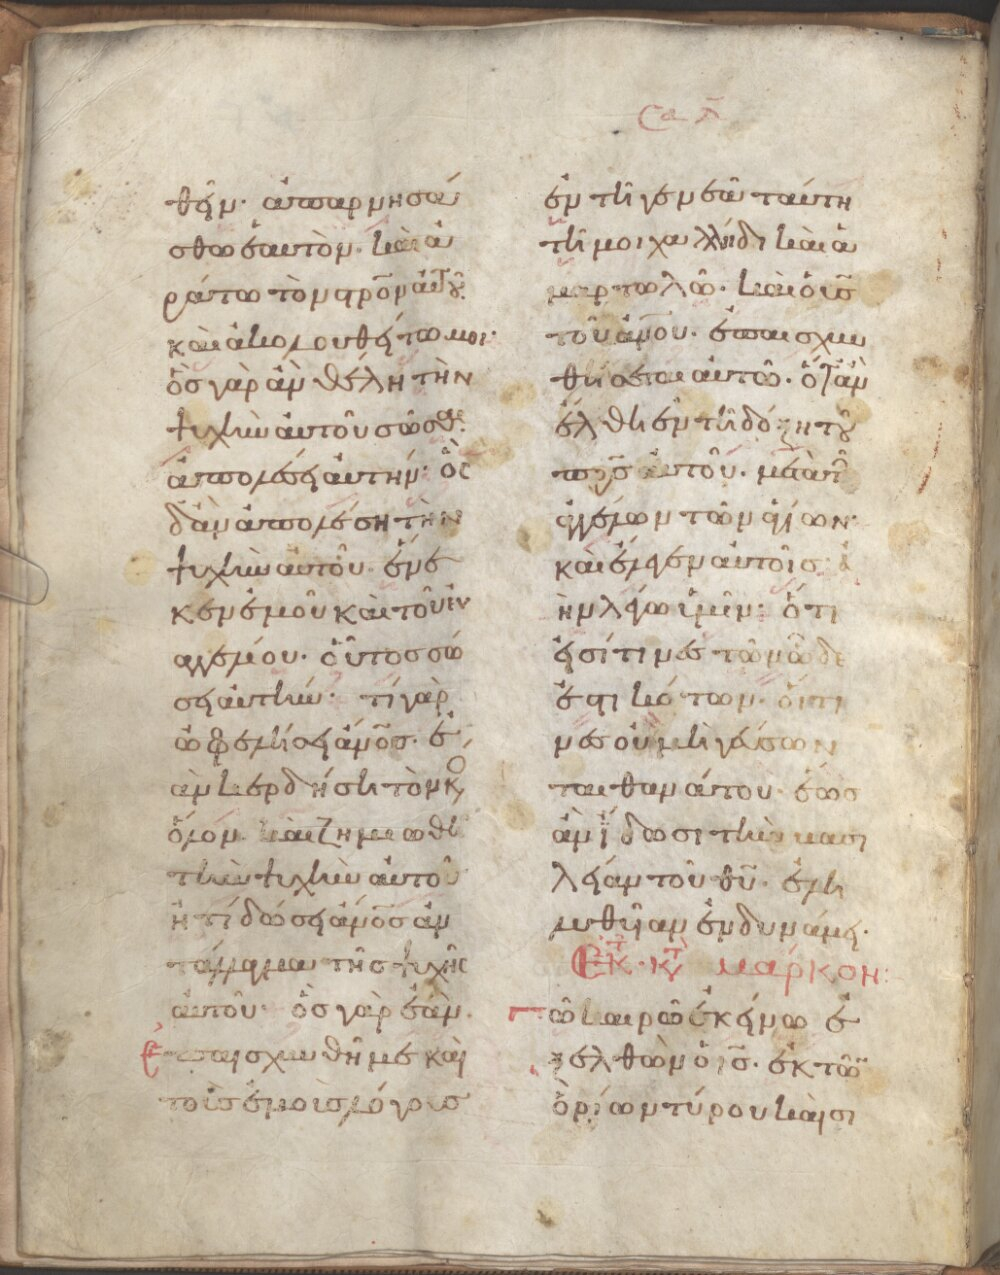 Σα Λ
θεῖν· ἀπαρνησά
σθω ἑαυτὸν· καὶ ἀ
ράτω τὸν σρο̅ν ἀυτοῦ·
καὶ ἀκολουθείτω μοι·
ὃς γὰρ ἂν θέλη τὴν
ψυχὴν ἀυτοῦ σῶσαι·
ἀπολέσει ἀυτήν· ὃς
δ ἂν ἀπολέση τὴν
ψυχὴν ἀυτοῦ ἕνε
κεν ἐμοῦ καὶ τοῦ ἐυ
αγγελίου· οὗτος σώ
σει ἀυτήν· τί γὰρ
ὠφελήσει ἀνο̅σ· ἐ
ὰν κερδήση τὸν κό
ὅλον· καὶ ζημιωθῆ
τὴν ψυχὴν ἀυτοῦ
ἢ τί δώσει ἀνο̅σ ἀν
τάλλαγμα τῆς ψυχῆς
ἀυτοῦ· ὃς γὰρ ἐὰν
ἐπαισχυνθῆ με καὶ
τοὺς ἐμοὺς λόγους
ἐν τῆ γενεᾶ ταύτη
τῆ μοιχαλλίδι καὶ ἁ
μαρτωλῶ· καὶ ὁ υ̅σ
τοῦ ἀν̅ου· ἐπαισχυν
θήσεται ἀυτῶ· ὅταν
ἔλθη ἐν τῆ δόξη τοῦ
πρ̅σ ἀυτοῦ· μετὰ τῶν
ἀγγέλων τῶν ἁγίων·
καὶ ἔλεγεν ἀυτοῖς· ἀ
μὴν λέγω ὑμῖν· ὅτι
εἰσί τινές τῶν ὧδε
ἑστηκότων· ὅιτι
νες οὐ μὴ γέυσων
ται θανάτου· ἕως
ἂν ἴδωσι τὴν βασι
λείαν τοῦ θυ̅· ἐλη
λυθῖαν ἐν δυνάμει·
Ἐκ τ κτ μάρκον:
Τῶ καιρῶ ἐκείνω ἐ
ξελθὼν ὁ ι̅σ· ἐκ τῶν
ὁρίων τύρου καὶ σι